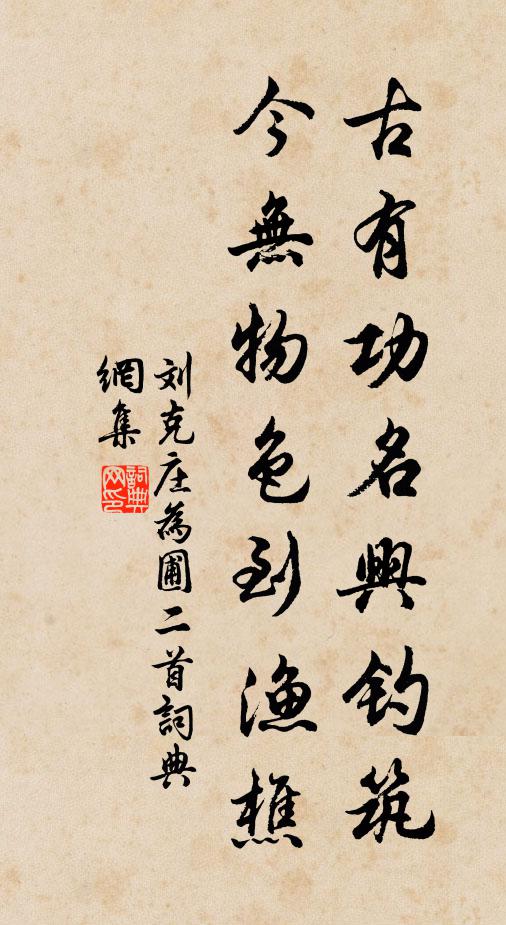 古有功名興钓筑
今無物色到漁樵
刘克庄為圃二首詞典
網集
詞典
网印